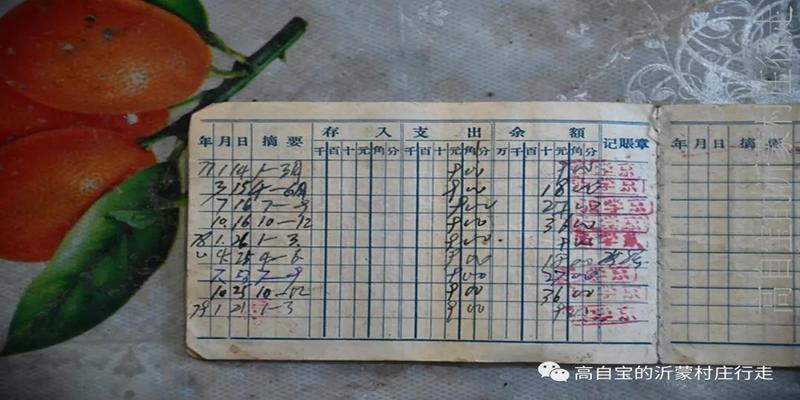 年 月 日 摘 要 存 入 支 出 余 额 记账章
千 百 十 元 角 分 千 百 十 元 角 分 万 千 百 十 元 角 分
77 1 14 1-3月 9 00 9 00
3 15 4-6月 9 00 18 00
7 16 7-9 9 00 27 00
10 16 10-12 9 00 36 00
78 1 26 1-3 9 00 9 00
4 25 4-6 9 00 18 00
7 7-9 9 00 27 00
10 25 10-12 9 00 36 00
79 1 21 1-3 9 00 9 00
年 月 日 摘 要
高自宝的沂蒙村庄行走